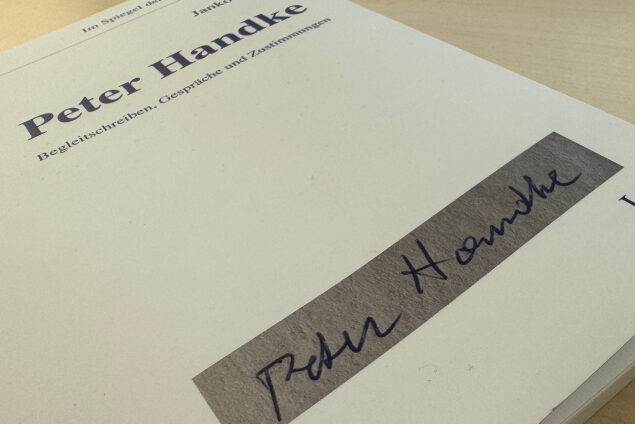 Im Spiegel der
Peter Handke
Begleitschreiben, Gespräche und Zustimmungen
Peter Handke